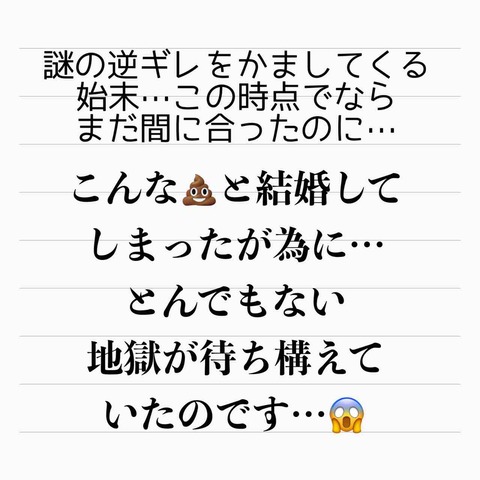 謎の逆ギレをかましてくる
始末…この時点でなら
まだ間に合ったのに…
こんな💩と結婚して
しまったが為に…
とんでもない
地獄が待ち構えて
いたのです…😱